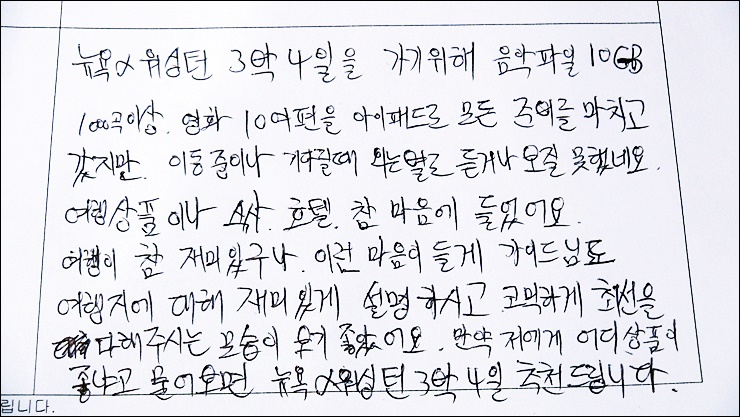 뉴욕&워싱턴 3박 4일을 가기위해 음악파일 10GB
1000곡이상. 영화 10여편을 아이패드로 모든 준비를 마치고
갔지만. 이동중이나 기다릴때 듣거나 오질 못했네요.
여행상품이나 식사. 호텔. 참 마음에 들었어요.
여행이 참 재미있구나. 이런 마음이 들게 가이드님도
여행지에 대해 재미있게 설명하시고 코믹하게 최선을
다해주시는 모습이 보기 좋았어요. 만약 저에게 어디상품이
좋냐고 물어보면 뉴욕&워싱턴 3박 4일 추천드립니다.
립니다.